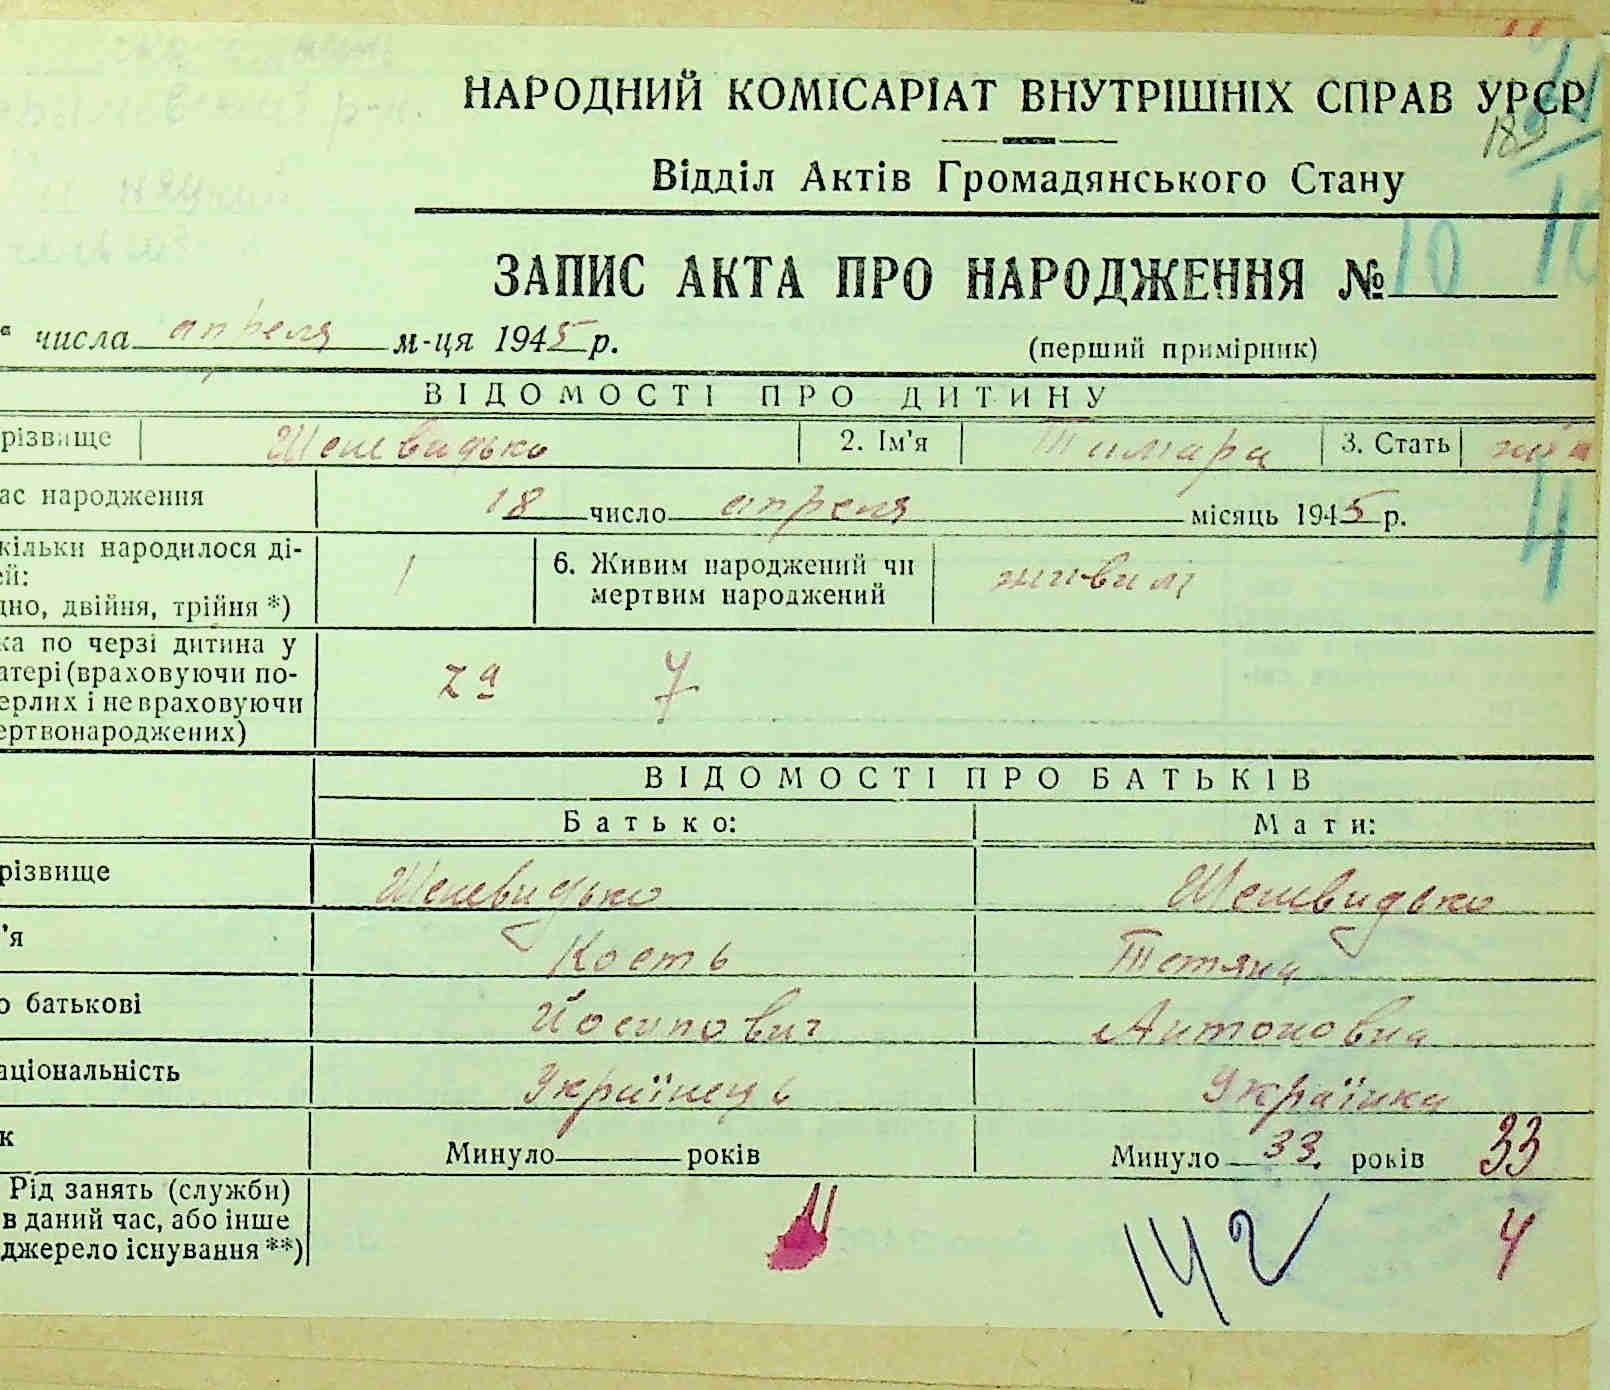 НАРОДНИЙ КОМІСАРІАТ ВНУТРІШНІХ СПРАВ УРСР
Відділ Актів Громадянського Стану
ЗАПИС АКТА ПРО НАРОДЖЕННЯ № 10
10
" числа апреля м-ця 1945 р. (перший примірник)
ВІДОМОСТІ ПРО ДИТИНУ
різвище 2. Ім'я Тамара 3. Стать
ас народження 18 число апреля місяць 1945 р.
4
кільки народилося ді-
ей:
дно, двійня, трійня *) 1 6. Живим народжений чи
мертвим народжений живим
ка по черзі дитина у
атері (враховуючи по-
ерлих і не враховуючи
ертвонароджених) 7а 7
ВІДОМОСТІ ПРО БАТЬКІВ
Батько: Мати:
різвище
'я Кость Тетяна
о батькові Йосипович Антоновна
аціональність Українець Українка
к Минуло років Минуло 33 років 33
Рід занять (служби)
в даний час, або інше
джерело існування **) 142 4